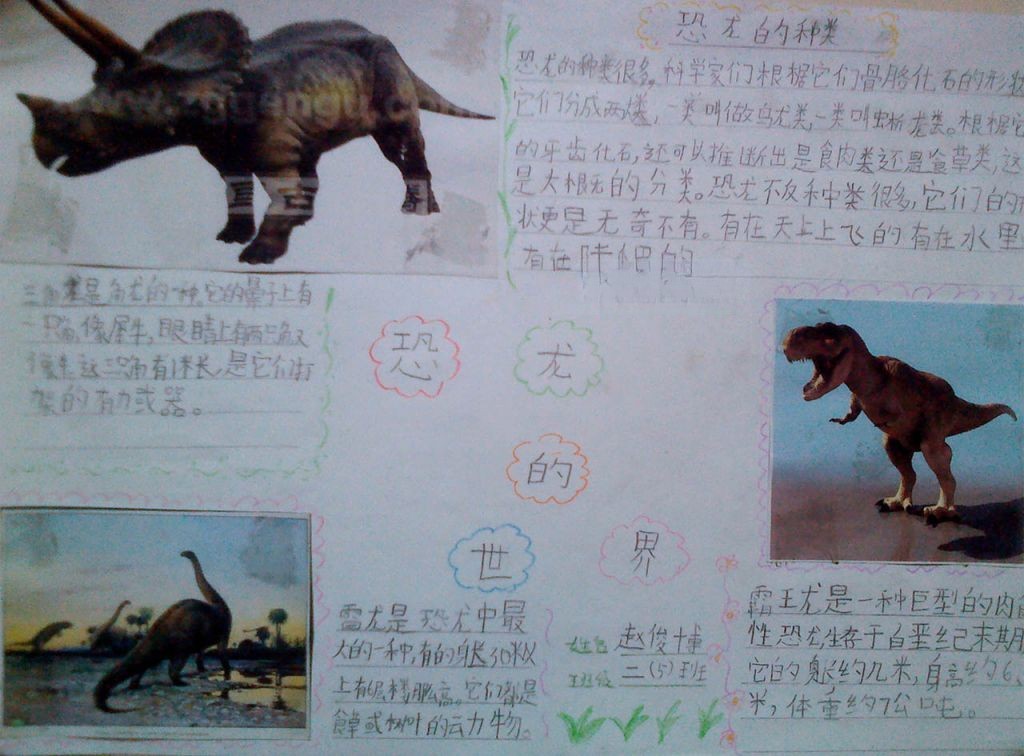 恐龙的种类
恐龙的种类很多。科学家们根椐它们骨骼化石的形状
它们分成两类，一类叫做鸟龙类，一类叫蜥龙类。根椐它
的牙齿化石，还可以推断出是食肉类还是食草类，这
是大概的分类。恐龙不仅种类很多，它们的形
状更是无奇不有。有在天上飞的有在水里
有在陆地的
三角龙是角龙的一种它的鼻子上有
一只角，像犀牛，眼睛上有两只角又
这三只角有1米长，是它们打
架的有力武器。
恐龙
的
世界
雷龙是恐龙中最
大的一种，有的身长30米以
上有层楼那么高。它们都是
食草或树叶的动物。
姓名 赵俊博
班级 二（5）班
霸王龙是一种巨型的肉食
性恐龙，生存于白垩纪末期
它的身长约九米，身高约6
米，体重约7公吨。